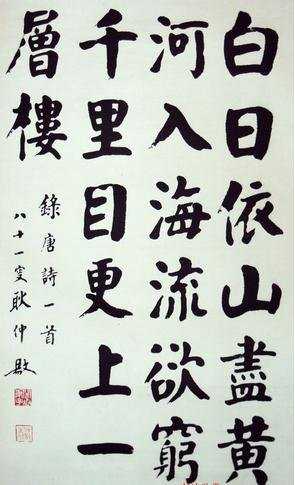 白日依山盡黃
河入海流欲窮
千里目更上一
層樓
錄唐詩一首
八十一叟耿仲敭